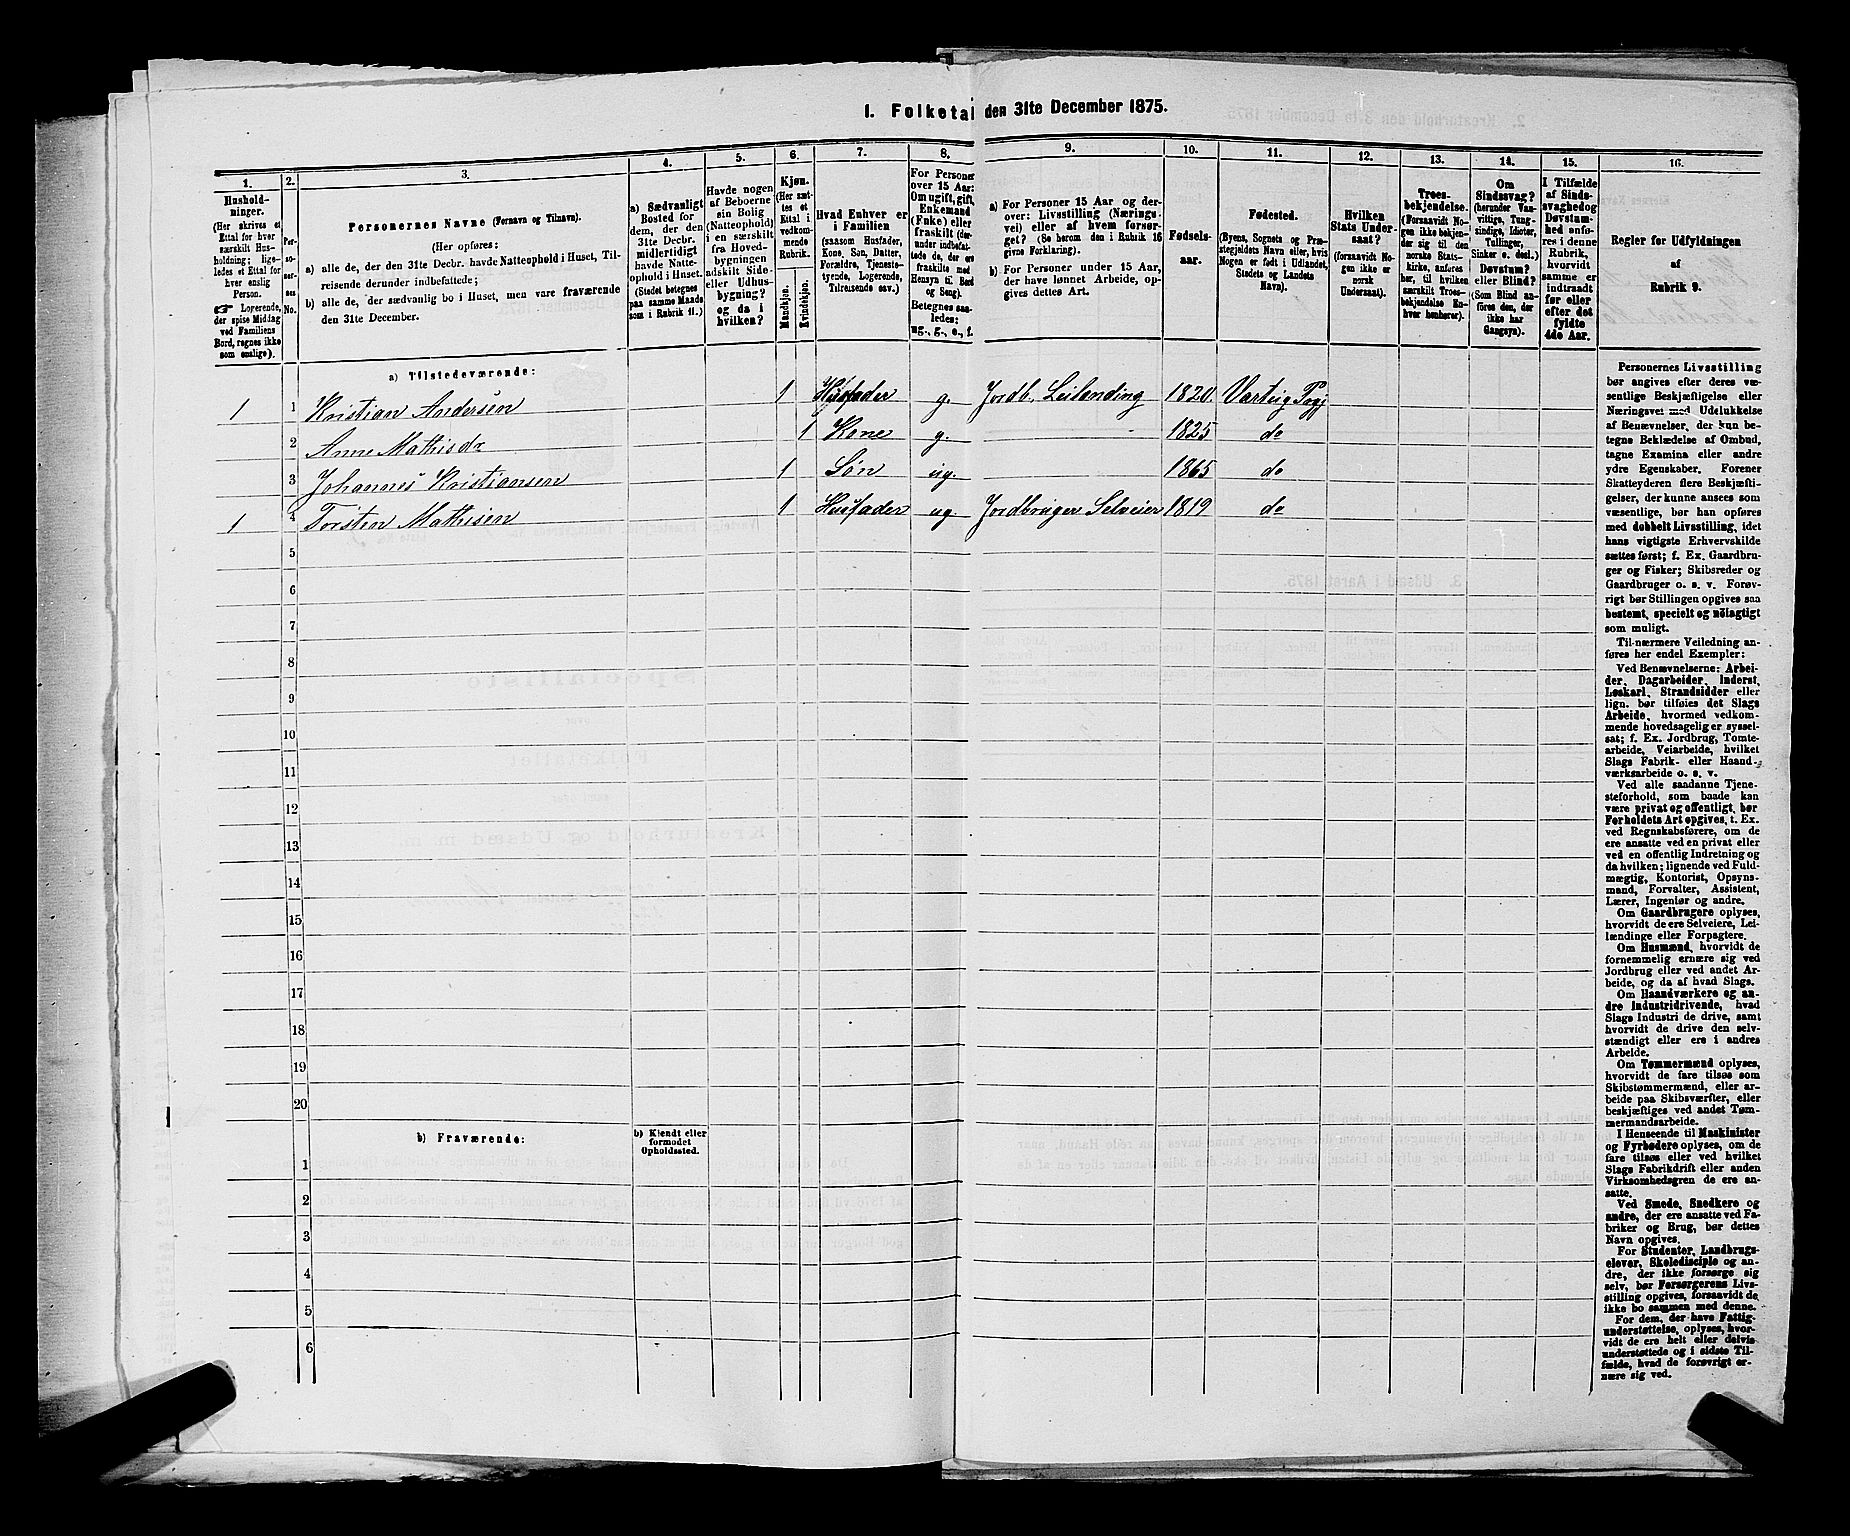 I. Folketal den 31te December 1875.
1.
2.
3.
4.
5.
6.
7.
8.
9.
10.
11.
12.
13.
14.
15.
16.
Hushold-
ninger.
(Her skrives et
Ettal for hver
særskilt Hus-
holdning; lige-
ledes et Ettal for
hver enslig
Person.
☞ Logerende,
der spise Middag
ved Familiens
Bord, regnes ikke
som enslige).
Per-
so-
ner-
nes
No.
Personernes Navne (Fornavn og Tilnavn).
(Her opføres:
a) alle de, der den 31te Decbr. havde Natteophold i Huset, Til-
reisende derunder indbefattede;
b) alle de, der sædvanlig bo i Huset, men vare fraværende
den 31te December.
a) Sædvanligt
Bosted for
dem, der den
31te Decbr.
midlertidigt
havde Natte-
ophold i Huset.
(Stedet betegnes
paa samme Maade
som i Rubrik 11.)
Havde nogen
af Beboerne
sin Bolig
(Natteophold)
i en særskilt
fra Hoved-
bygningen
adskilt Side-
eller Udhus-
bygning?
og da i
hvilken?
Kjøn.
(Her sæt-
tes et
Ettal i
vedkom-
mende
Rubrik.
Mandkjøn.
Kvindekjøn.
Hvad Enhver er
i Familien
(saasom Husfader,
Kone, Søn, Datter,
Forældre, Tjeneste-
tyende, Logerende,
Tilreisende osv.)
For Personer
over 15 Aar:
Om ugift, gift,
Enkemand
(Enke) eller
fraskilt (der-
under indbefat-
tede de, der ere
fraskilte med
Hensyn til Bord
og Seng).
Betegnes saa-
ledes:
ug., g., e., f.
a) For Personer 15 Aar og der-
over: Livsstilling (Nærings-
vei) eller af hvem forsør-
get? (Se herom den i Rubrik 16
givne Forklaring).
b) For Personer under 15 Aar,
der have lønnet Arbeide, op-
gives dettes Art.
Fødsels-
aar.
Fødested.
(Byens, Sognets og Præ-
stegjeldets Navn eller, hvis
Nogen er født i Udlandet,
Stedets og Landets
Navn).
Hvilken
Stats Under-
saat?
(forsaavidt No-
gen ikke er
norsk
Undersaat).
Troes-
bekjendelse.
(Forsaavidt No-
gen ikke bekjen-
der sig til den
norske Stats-
kirke, anføres
her, til hvilken
særskilt Troes-
bekjendelse En-
hver henhører).
Om
Sindssvag?
(herunder Van-
vittige, Tung-
sindige, Idioter,
Tullinger,
Sinker o. desl.)
Døvstum?
eller Blind?
(Som Blind an-
føres den, der
ikke har
Gangsyn).
I Tilfælde
af Sinds-
svaghed og
Døvstum-
hed anfø-
res i denne
Rubrik,
hvorvidt
samme er
indtraadt
før eller
efter det
fyldte
4de Aar.
Regler for Udfyldningen
af
Rubrik 9.
a) Tilstedeværende:
1 1 Kristian Andersen 1 Husfader g. Jordb. Leilending 1820. Varteig Pgj
2 Anne Mathisdr 1 Kone g. 1825 do
3 Johannes Kristiansen 1 Søn ug. 1865 do
1 4 Torsten Mathisen 1 Husfader ug. Jordbruger Selveier 1819 do
5
6
7
8
9
10
11
12
13
14
15
16
17
18
19
20
b) Fraværende:
b) Kjendt eller
formodet
Opholdssted.
1
2
3
4
5
6
Personernes Livsstilling
bør angives efter deres væ-
sentlige Beskjæftigelse eller
Næringsvei med Udelukkelse
af Benævnelser, der kun be-
tegne Beklædelse af Ombud,
tagne Examina eller andre
ydre Egenskaber. Forener
Skatteyderen flere Beskjæfti-
gelser, der kunne ansees som
væsentlige, bør han opføres
med dobbelt Livsstilling, idet
hans vigtigste Erhvervskilde
sættes først; f. Ex. Gaardbru-
ger og Fisker; Skibsreder og
Gaardbruger o. s. v. Forøv-
rigt bør Stillingen opgives saa
bestemt, specielt og nöiagtigt
som muligt.
Til nærmere Veiledning an-
føres her endel Exempler:
Ved Benævnelserne: Arbei-
der, Dagarbeider, Inderst,
Løskarl, Strandsidder eller
lign. bør tilføies det Slags
Arbeide, hvormed vedkom-
mende hovedsagelig er syssel-
sat; f. Ex. Jordbrug, Tomte-
arbeide, Veiarbeide, hvilket
Slags Fabrik- eller Haand-
værksarbeide o. s. v.
Ved alle saadanne Tjene-
steforhold, som baade kan
være privat og offentligt, bør
Forholdets Art opgives, t. Ex.
ved Regnskabsførere, om de
ere ansatte ved en privat eller
ved en offentlig Indretning og
da hvilken; lignende ved Fuld-
mægtig, Kontorist, Opsyns-
mand, Forvalter, Assistent,
Lærer, Ingeniør og andre.
Om Gaardbrugere oplyses,
hvorvidt de ere Selveiere, Lei-
lændinge eller Forpagtere.
Om Husmænd, hvorvidt de
fornemmelig ernære sig ved
Jordbrug eller ved andet Ar-
beide, og da af hvad Slags.
Om Haandværkere og an-
dre Industridrivende, hvad
Slags Industri de drive, samt
hvorvidt de drive den selv-
stændigt eller ere i andres
Arbeide.
Om Tømmermænd oplyses,
hvorvidt de fare tilsøs som
Skibstømmermænd, eller ar-
beide paa Skibsværfter, eller
beskjæftiges ved andet Tøm-
mermandsarbeide.
I Henseende til Maskinister
og Fyrbødere oplyses, om de
fare tilsøs eller ved hvilket
Slags Fabrikdrift eller anden
Virksomhedsgren de ere an-
satte.
Ved Smede, Snedkere og
andre, der ere ansatte ved Fa-
briker og Brug, bør dettes
Navn opgives.
For Studenter, Landbrugs-
elever, Skoledisciple og an-
dre, der ikke forsørge sig
selv, bør Forsørgerens Livs-
stilling opgives, forsaavidt de
ikke bo sammen med denne.
For dem, der have Fattig-
understøttelse, oplyses, hvor-
vidt de ere helt eller delvis
understøttede og i sidste Til-
fælde, hvad de forøvrigt er-
nære sig ved.